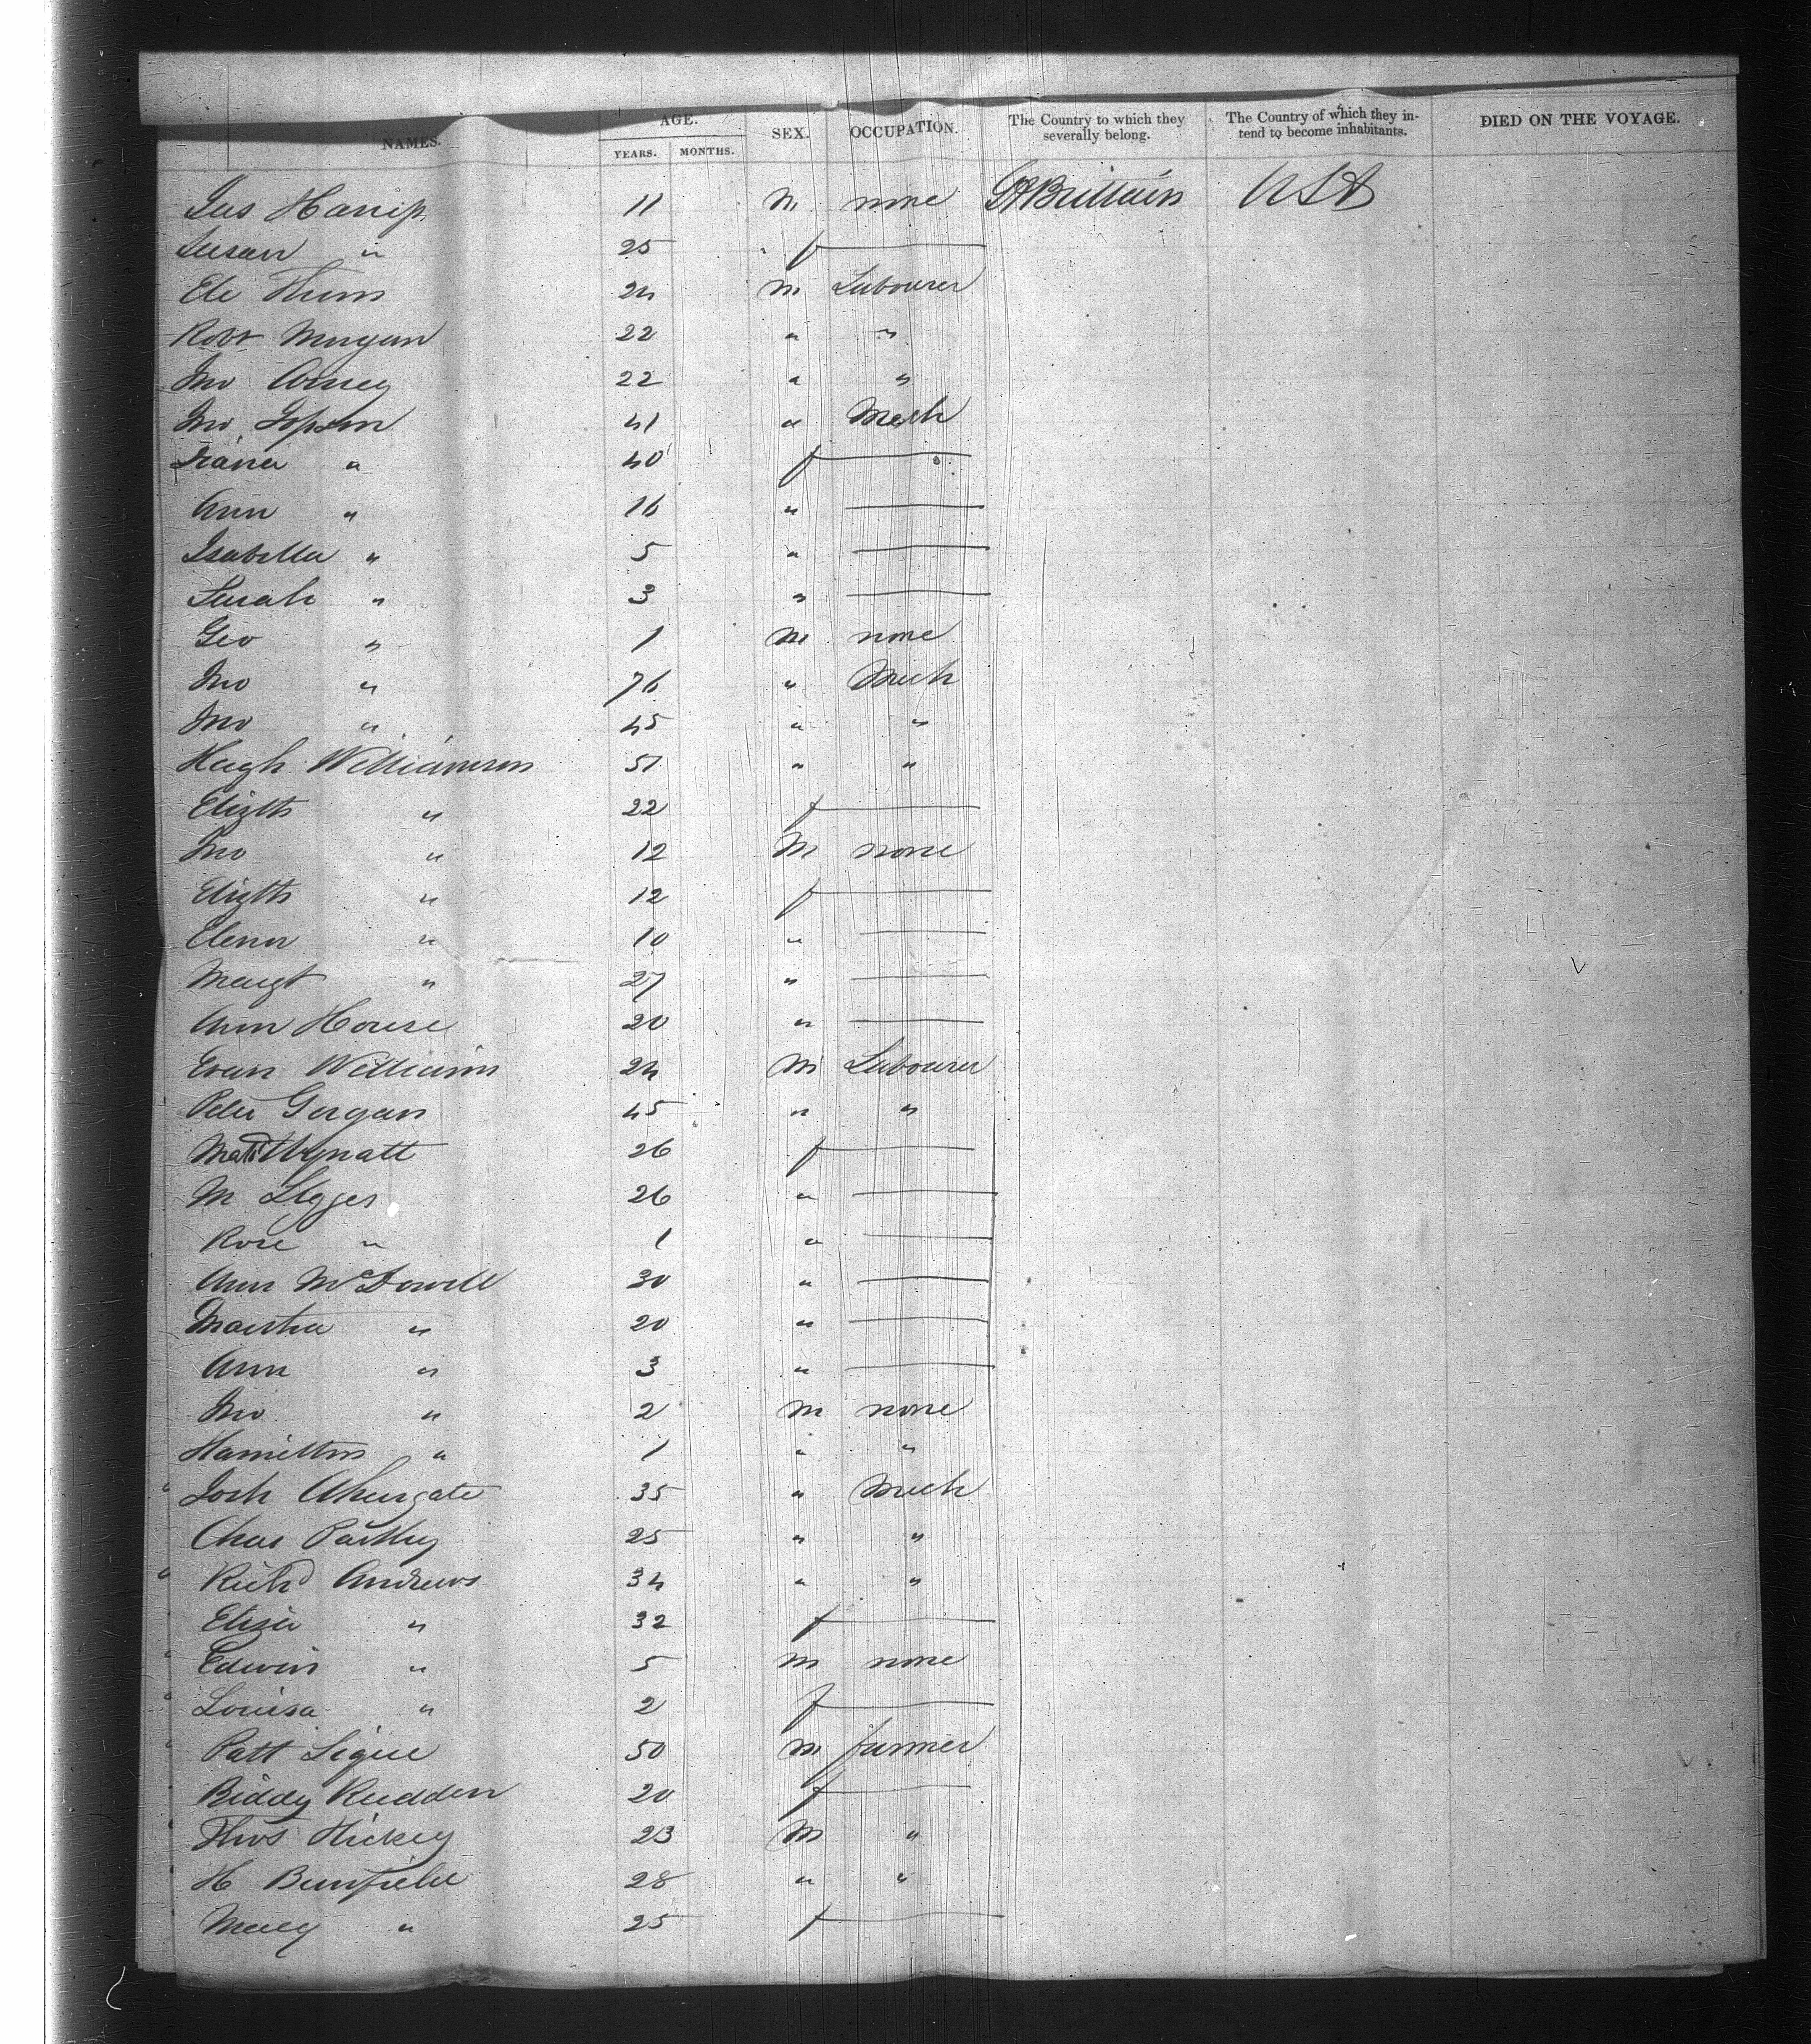 NAMES. AGE. YEARS. MONTHS. SEX. OCCUPATION. The Country to which they severally belong. The Country of which they intend to become inhabitants. DIED ON THE VOYAGE.
Jas 11 m none Gt Brittain USA
Susan " 25 f —
24 m Labourer
Robt Morgan 22 " "
Jno 22 " "
Jno Jopson 41 " Mech
Diana " 40 f —
Ann " 16 " —
Isabella " 5 " —
Sarah " 3 " —
Geo " 1 m none
Jno " 76 " Mech
Jno " 45 " "
Hugh Williamson 51 " "
Elizth " 22 f —
Jno " 12 m none
Elizth " 12 f —
Elenor " 10 " —
Margt " 27 " —
Ann House 20 " —
Evan Williams 24 m Labourer
Peter Gorgan 45 " "
Wynatt 26 f —
M 26 " —
Rose " 1 " —
Ann McDowell 30 " —
Martha " 20 " —
Ann " 3 " —
Jno " 2 m none
Hamilton " 1 " "
Josh 35 " Mech
Chas 25 " "
Richd Andrews 34 " "
Eliza " 32 f —
Edwin " 5 m none
Louisa " 2 f —
Patt 50 m farmer
Biddy Rudden 20 f —
Thos Hickey 23 m "
H 28 " "
Mary " 25 f —